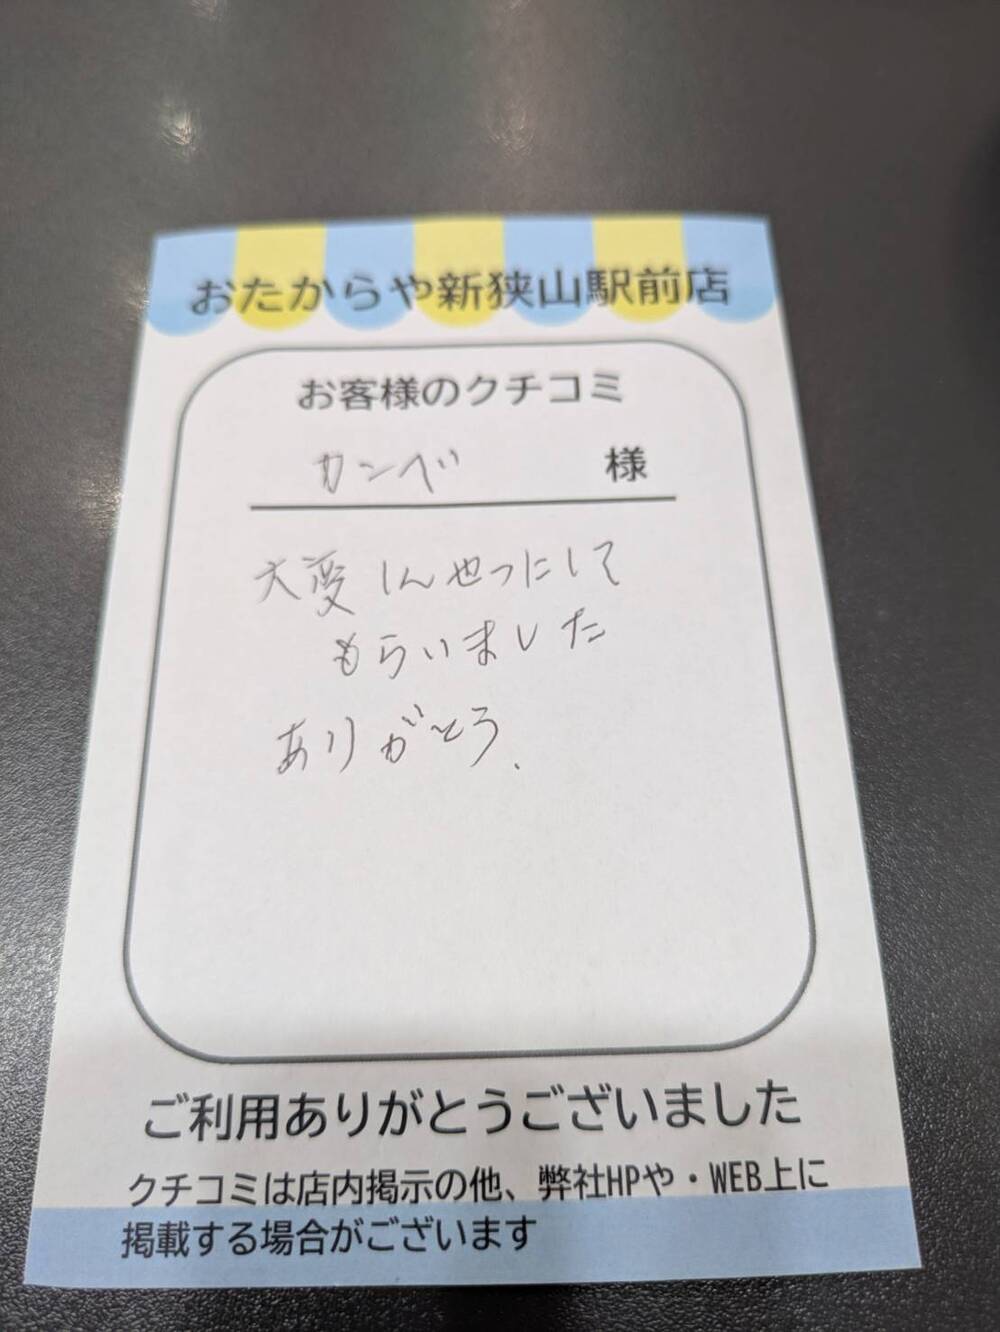 おたからや新狭山駅前店
お客様のクチコミ
カンベ 様
大変しんせつにして
もらいました
ありがとう.
ご利用ありがとうございました
クチコミは店内掲示の他、弊社HPや・WEB上に
掲載する場合がございます